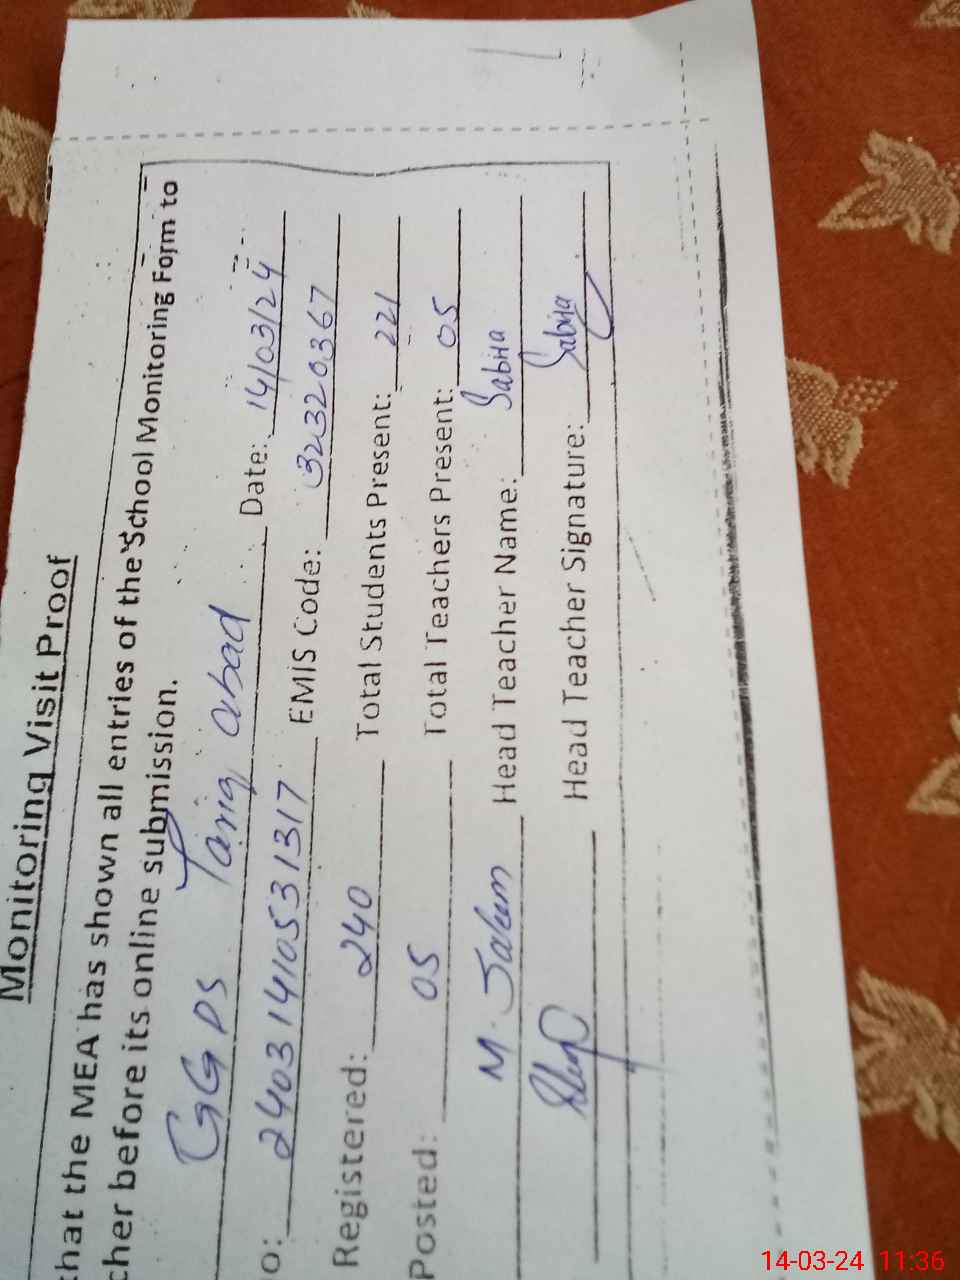 Monitoring Visit Proof
that the MEA has shown all entries of the School Monitoring Form to
cher before its online submission.
GGPS Tariq abad Date: 14/03/24
o: 240314141053 1317 EMIS Code: 32320367
Registered: 240 Total Students Present: 221
Posted: 05 Total Teachers Present: 05
M. Saleem Head Teacher Name: Sabiha
Head Teacher Signature: Sabiha
14-03-24 11:36